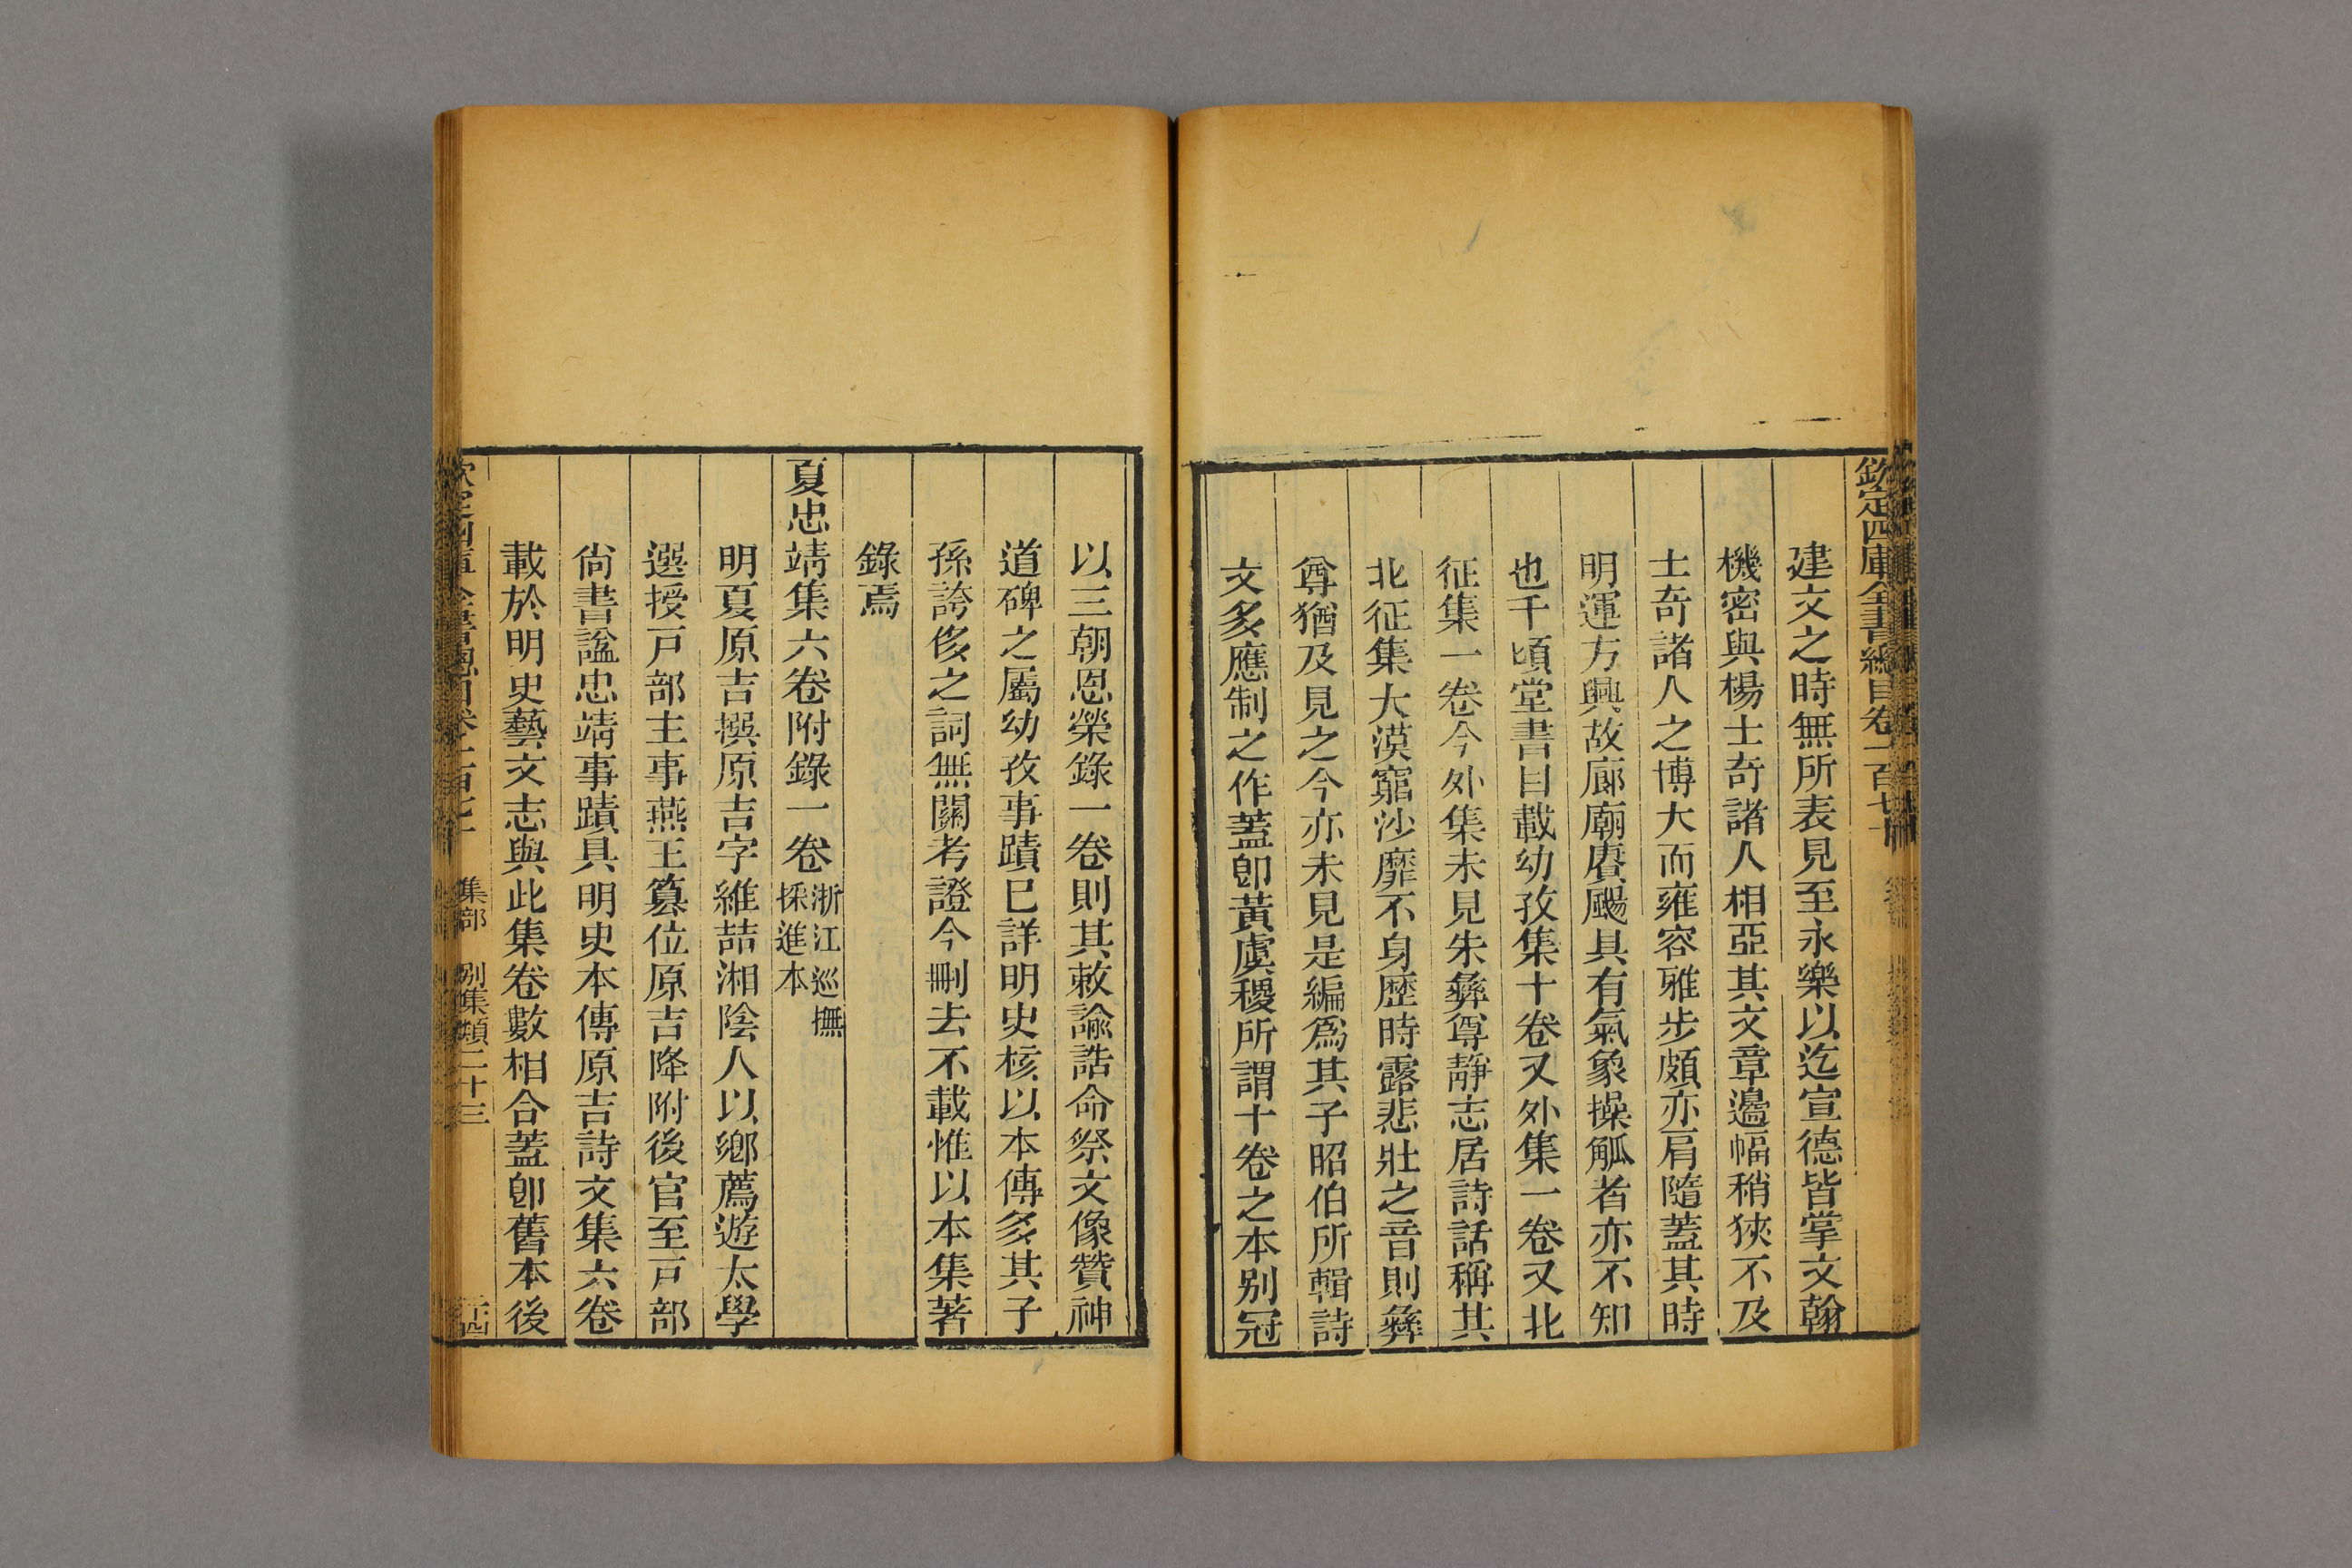 欽定四庫全書總目卷一百七十
建文之時無所表見至永樂以迄宣德皆掌文翰
機密與楊士奇諸人相亞其文章邊幅稍狹不及
士奇諸人之博大而雍容雅步頗亦肩隨蓋其時
明運方興故廊廟賡颺具有氣象操觚者亦不知
也千頃堂書目載幼孜集十卷又外集一卷又北
征集一卷今外集未見朱彝尊靜志居詩話稱其
北征集大漠窮沙靡不身歴時露悲壯之音則彝
尊猶及見之今亦未見是編爲其子昭伯所輯詩
文多應制之作蓋卽黃虞稷所謂十卷之本别冠
以三朝恩榮錄一卷則其敕諭誥命祭文像贊神
道碑之屬幼孜事蹟已詳明史核以本傳多其子
孫誇侈之詞無關考證今刪去不載惟以本集著
錄焉
夏忠靖集六卷附錄一卷浙江巡撫
採進本
明夏原吉撰原吉字維喆湘陰人以鄉薦遊太學
選授戸部主事燕王簒位原吉降附後官至戸部
尚書諡忠靖事蹟具明史本傳原吉詩文集六卷
載於明史藝文志與此集卷數相合蓋卽舊本後
欽定四庫全書總目卷一百七十 集部 别集類二十三